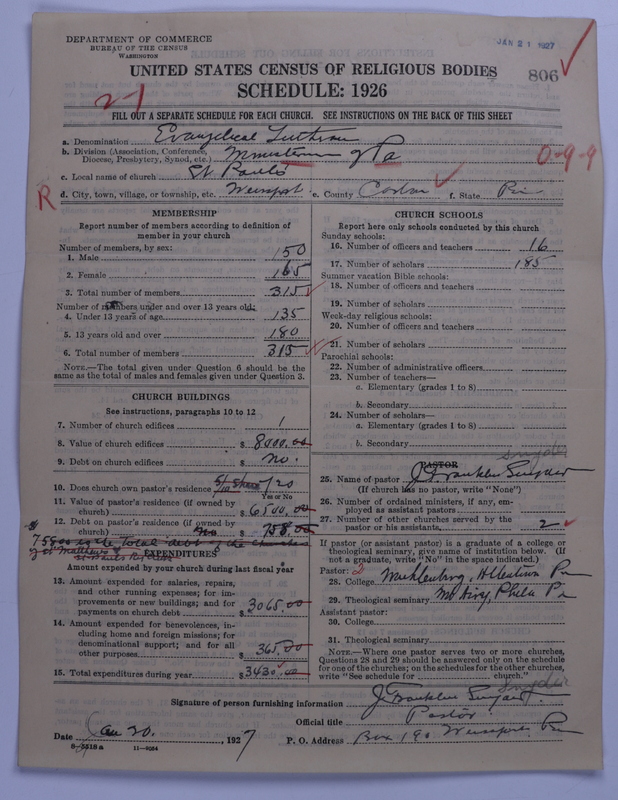 DEPARTMENT OF COMMERCE
BUREAU OF THE CENSUS
WASHINGTON
JAN 21 1927
UNITED STATES CENSUS OF RELIGIOUS BODIES
806
SCHEDULE: 1926
2-1
FILL OUT A SEPARATE SCHEDULE FOR EACH CHURCH. SEE INSTRUCTIONS ON THE BACK OF THIS SHEET
a. Denomination Evangelical Lutheran
b. Division (Association, Conference, Diocese, Presbytery, Synod, etc.) Ministerium of Pa
0-9-9
c. Local name of church St Pauls
R
d. City, town, village, or township, etc. Weissport e. County Carbon f. State
MEMBERSHIP
Report number of members according to definition of
member in your church
Number of members, by sex:
1. Male 150
2. Female 165
3. Total number of members 315
Number of members under and over 13 years old:
4. Under 13 years of age 135
5. 13 years old and over 180
6. Total number of members 315
NOTE.—The total given under Question 6 should be the
same as the total of males and females given under Question 3.
CHURCH BUILDINGS
See instructions, paragraphs 10 to 12
7. Number of church edifices 1
8. Value of church edifices $ 8000.00
9. Debt on church edifices $ no.
10. Does church own pastor's residence
Yes or No
11. Value of pastor's residence (if owned by
church) $ 6500.00
12. Debt on pastor's residence (if owned by
church) no $ 758.00
EXPENDITURES
Amount expended by your church during last fiscal year
13. Amount expended for salaries, repairs,
and other running expenses; for im-
provements or new buildings; and for
payments on church debt $ 3065.00
14. Amount expended for benevolences, in-
cluding home and foreign missions; for
denominational support; and for all
other purposes $ 365.00
15. Total expenditures during year $ 3430.00
CHURCH SCHOOLS
Report here only schools conducted by this church
Sunday schools:
16. Number of officers and teachers 16
17. Number of scholars 185
Summer vacation Bible schools:
18. Number of officers and teachers
19. Number of scholars
Week-day religious schools:
20. Number of officers and teachers
21. Number of scholars
Parochial schools:
22. Number of administrative officers
23. Number of teachers—
a. Elementary (grades 1 to 8)
b. Secondary
24. Number of scholars—
a. Elementary (grades 1 to 8)
b. Secondary
Snyder
PASTOR
25. Name of pastor J. Franklin Snyder
(If church has no pastor, write "None")
26. Number of ordained ministers, if any, em-
ployed as assistant pastors
27. Number of other churches served by the
pastor or his assistants 2
If pastor (or assistant pastor) is a graduate of a college or
theological seminary, give name of institution below. (If
not a graduate, write "No" in the space indicated.)
Pastor: 2
28. College Muhlenberg, Allentown
29. Theological seminary Mt Airy, Phila
Assistant pastor:
30. College
31. Theological seminary
NOTE.—Where one pastor serves two or more churches,
Questions 28 and 29 should be answered only on the schedule
for one of the churches; on the schedules for the other churches,
write "See schedule for church."
Snyder
Signature of person furnishing information J. Franklin Snyder
Official title Pastor
Date Jan 20, 1927 P. O. Address Box 190 Weissport
8-5518a 11-9084